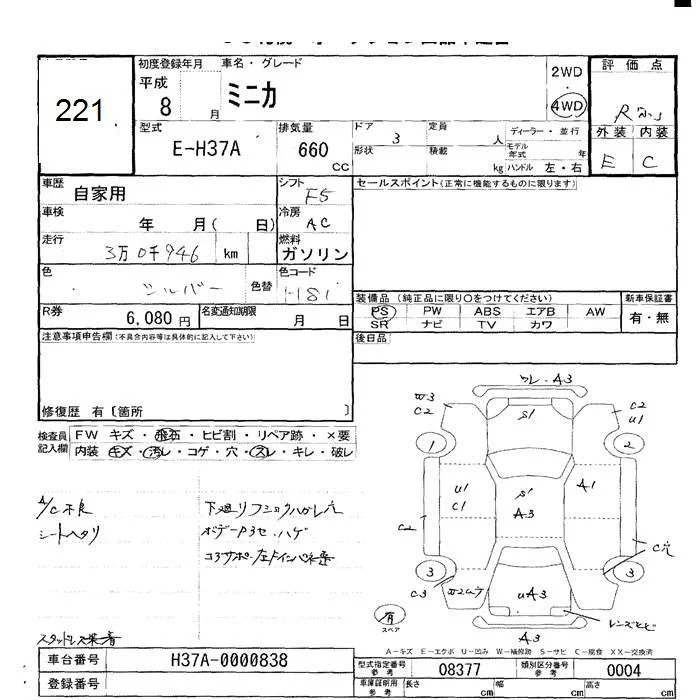 221
初度登録年月 車名・グレード
平成 8 月 ミニカ
2WD
4WD
評価点
R
外装 内装
E C
型式 排気量 ドア 定員 ディーラー・並行
E-H37A 660 CC 3 人
形状 積載 kg モデル年式 年
ハンドル 左・右
車歴 自家用 シフト F5
セールスポイント(正常に機能するものに限ります)
車検 年 月( 日) 冷房 AC
走行 3万0千946 km 燃料 ガソリン
色 シルバー 色替 色コード H81
R券 6,080円 名変通知期限 月 日
装備品 (純正品に限り〇をつけてください) 新車保証書
PS PW ABS エアB AW 有・無
SR ナビ TV カワ
後日品
注意事項申告欄(不具合内容等は具体的に記入して下さい)
修復歴 有〔箇所 〕
検査員記入欄 FW キズ・飛石・ヒビ割・リペア跡・×要
内装 キズ・汚レ・コゲ・穴・スレ・キレ・破レ
A/C不良
シートヘタリ
下廻リフショクハガレ穴
ボデーP3セ・ハゲ
コアサポ
スタッドレス装着
ワレ・A3
W3
C2
S1
C2
U1
1
2
U1
C1
S1
A3
A1
C2
C穴
3
3
C3
UA3
レンズヒビ
A3
有
スペア
A-キズ E-エクボ U-凹み W-補修跡 S-サビ C-腐食 XX-交換済
車台番号 H37A-0000838
登録番号
型式指定番号 参考 08377 類別区分番号 参考 0004
車庫証明用 参考 長さ cm 幅 cm 高さ cm